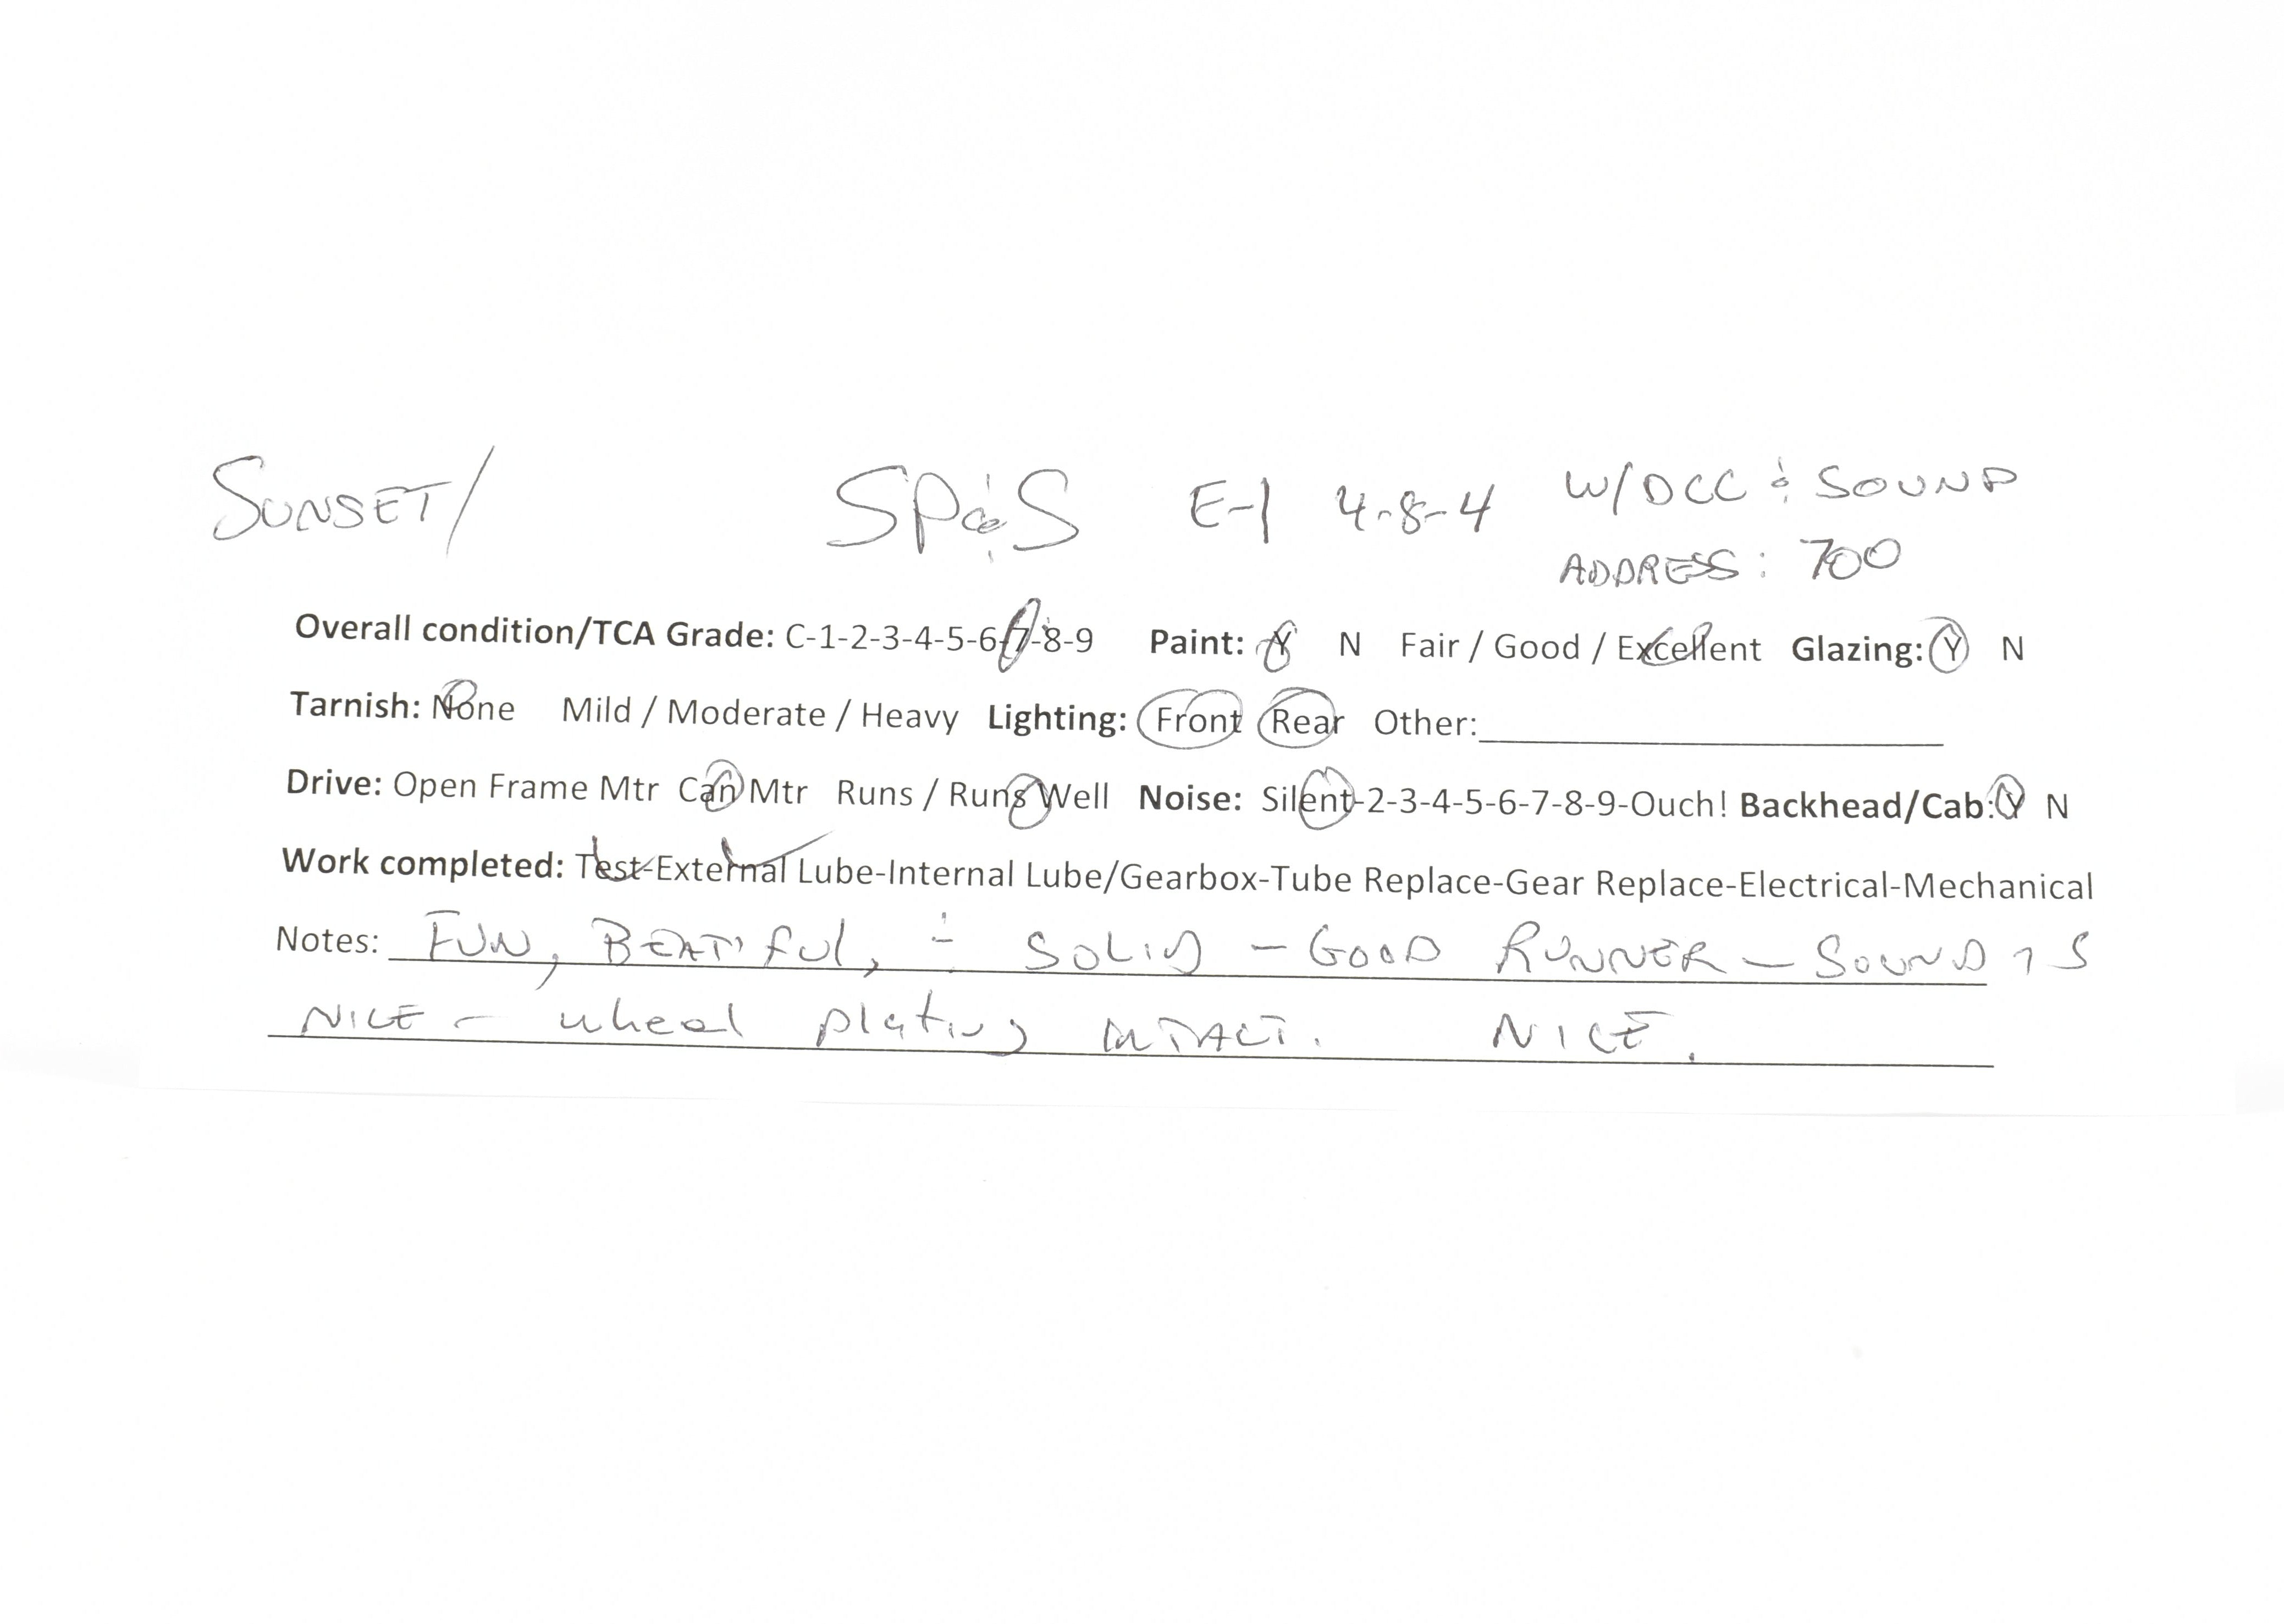 SUNSET/ SP&S E-1 4-8-4 W/DCC & SOUND
ADDRESS: 700
Overall condition/TCA Grade: C-1-2-3-4-5-6-7-8-9 Paint: Y N Fair / Good / Excellent Glazing: Y N
Tarnish: None Mild / Moderate / Heavy Lighting: Front Rear Other:
Drive: Open Frame Mtr Can Mtr Runs / Runs Well Noise: Silent-2-3-4-5-6-7-8-9-Ouch! Backhead/Cab: Y N
Work completed: Test-External Lube-Internal Lube/Gearbox-Tube Replace-Gear Replace-Electrical-Mechanical
Notes: FUN, BEATIFUL, & SOLID - GOOD RUNNER - SOUND IS
NICE - wheel plating INTACT. NICE.